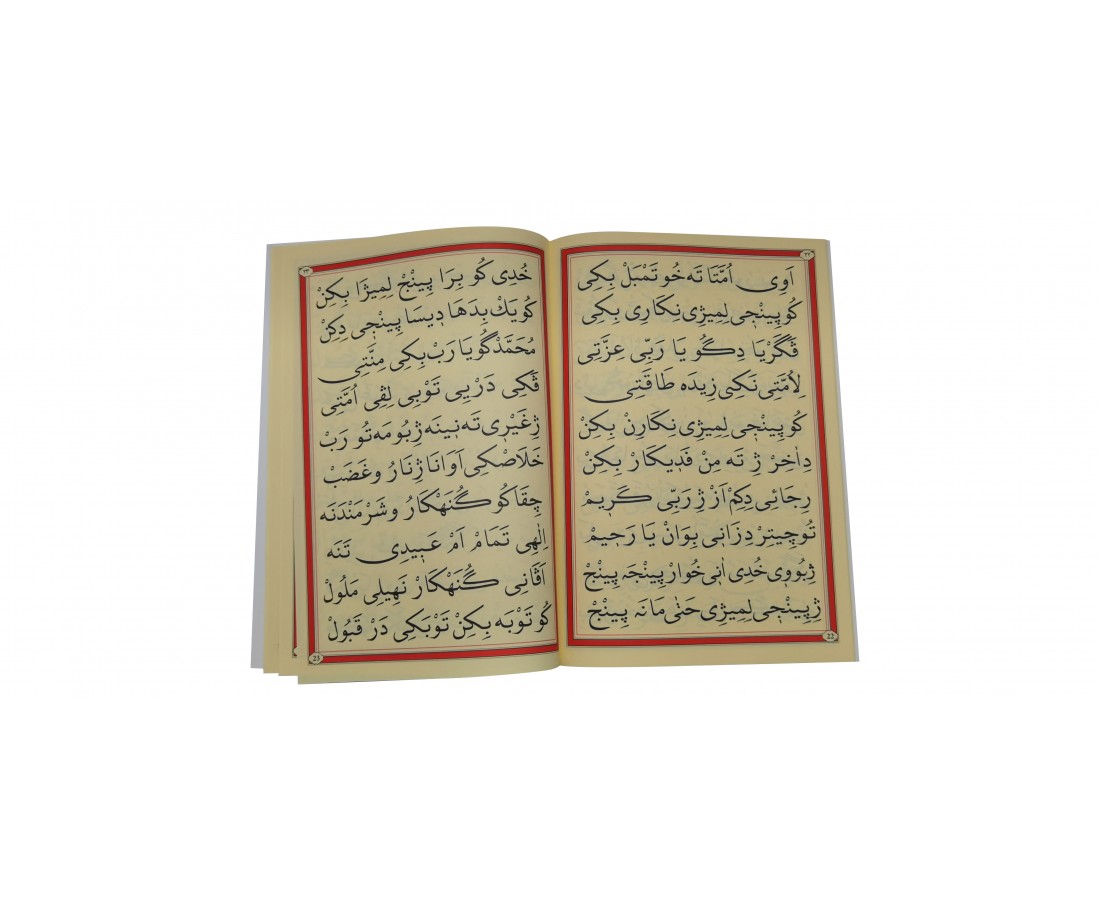 ٢٢
اَوِى اُمَّتَا تَه خُو تَمْبَلْ بِكِى
كُو پِينْجِى لِمِيژِى نِكَارِى بِكِى
ڤَگَرْيَا دِگُو يَا رَبِّى عِزَّتِى
لِاُمَّتِى نَكِى زِيدَه طَاقَتِى
كُو پِينْجِى لِمِيژِى نِكَارِنْ بِكِنْ
دَاخِرْ ژِ تَه مِنْ فَدِيكَارْ بِكِنْ
رِجَائِى دِكِمْ اَزْ ژِ رَبِّى كَرِيمْ
تُو چِيتِرْ دِزَانِى بِوَانْ يَا رَحِيمْ
ژِبُووِى خُدِى اَنِى خُوارْ پِينْجَه پِينْجْ
ژِ پِينْجِى لِمِيژِى حَتٰى مَانَه پِينْجْ
22
٢٣
خُدِى كُو بِرَا پِينْجْ لِمِيژَا بِكِنْ
كُو يَكْ بِدَهَا دِيسَا پِينْجِى دِكِنْ
مُحَمَّدْ گُو يَا رَبْ بِكِى مِنَّتِى
ڤَكِى دَرْيِى تَوْبِى لِڤِى اُمَّتِى
ژِ غَيْرِى تَه نِينَه ژِبُو مَه تُو رَبْ
خَلَاصْ كِى اَوَانَا ژِنَارُ و غَضَبْ
چِقَا كُو گُنَهْكَارُ و شَرْمَنْدَنَه
اِلٰهِى تَمَامْ اَمْ عَبِيدِى تَنَه
اَڤَانِى گُنَهْكَارْ نَهِيلِى مَلُولْ
كُو تَوْبَه بِكِنْ تَوْبَكِى دَرْ قَبُولْ
23